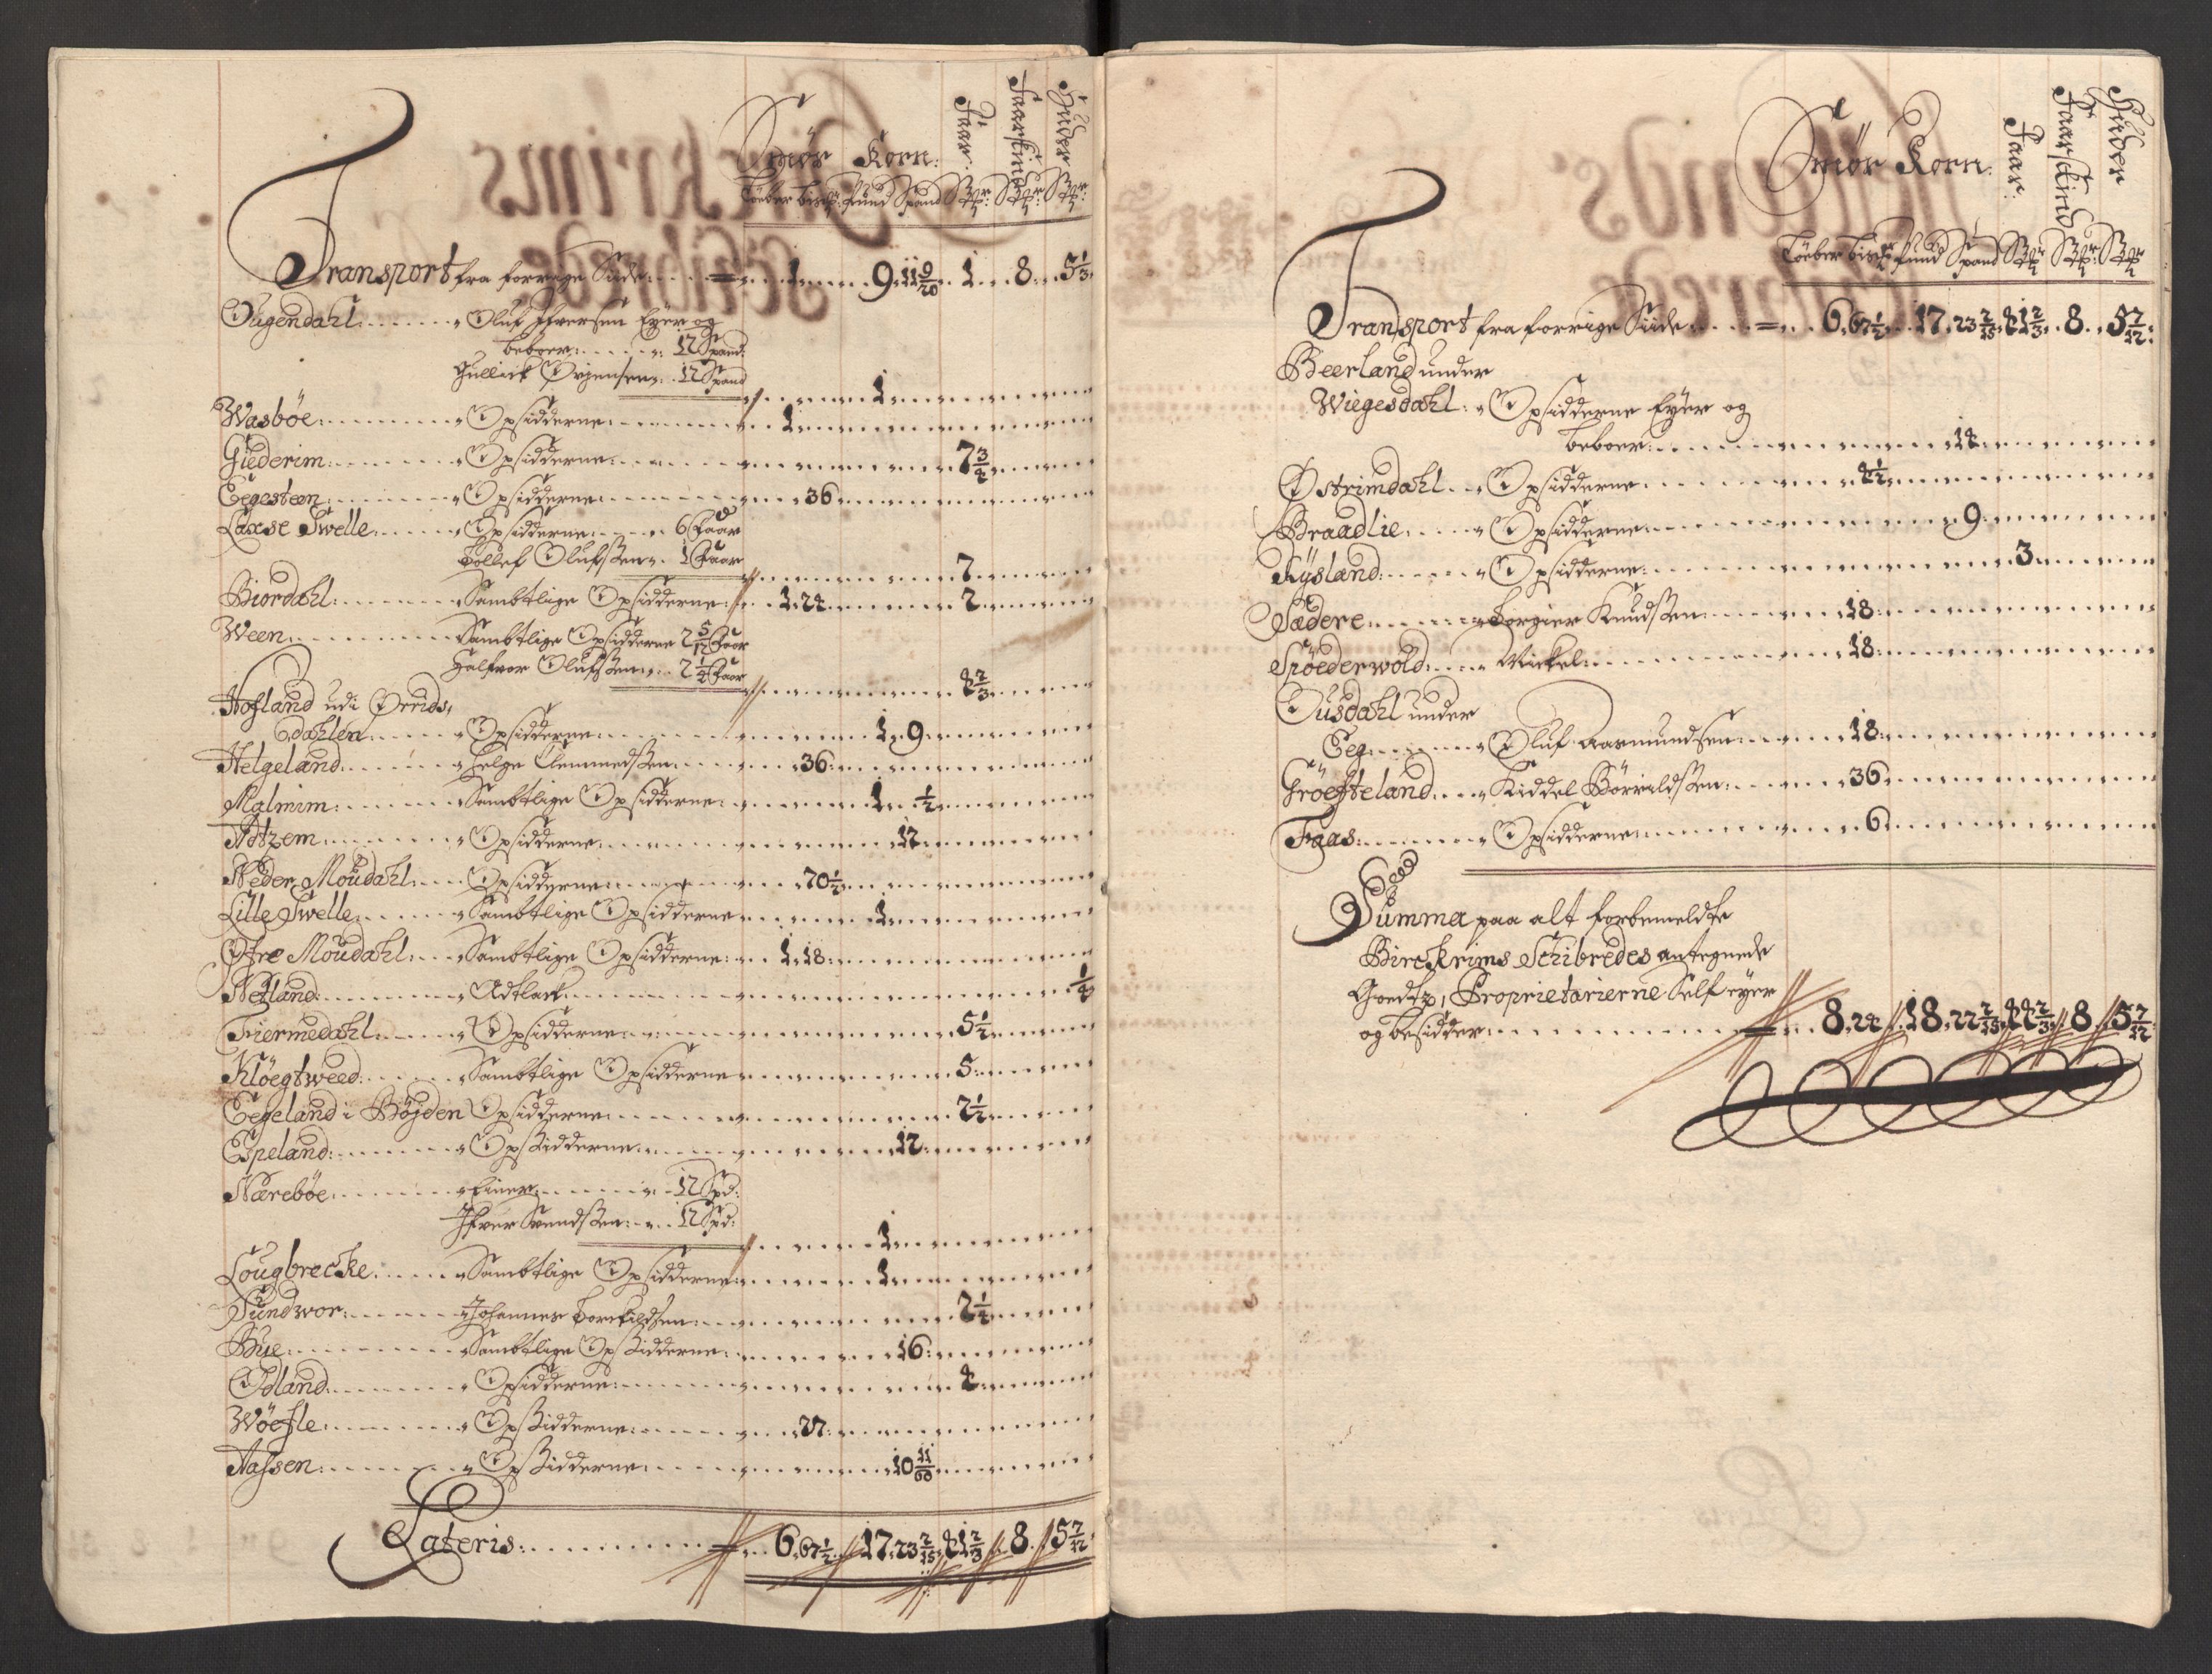 Smör Korn: Faar: Faarskind Huder
Löeber bisp: Pund Spand Stk: Stk: Stk:
Transport fra forrige Siide: 1 9 11 9/20 1 8 5 1/3
Ougendahl Oluf Ifversen Eyer og
beboer: 12 Spand:
Gullick Ørjensen: 12 Spand
1
Wasböe Opsidderne 1
Giederim Opsidderne 7 3/4
Eegesteen Opsidderne 36
Laxse Swelle Opsidderne 6 Faar
Tollef Olufsen 1 Faar
7
Biordahl Sambtlige Opsidderne 1 24 2
Ween Sambtlige Opsidderne 2 5/12 Faar
Halfvor Olufsen 2 1/4 Faar
4 2/3
Hofland udi Ørrids,
dahlen Opsidderne 1 9
Helgeland Helge Clemmedsen 36
Malmim Sambtlige Opsidderne 1 1/2
Aatzem Opsidderne 12
Neder Moudahl Opsidderne 70 1/2
Lille Swelle Sambtlige Opsidderne 1
Øfre Moudahl Sambtlige Opsidderne 1 18
Netland Adtlack 1/4
Fiermedahl Opsidderne 5 1/2
Klöegtweed Sambtlige Opsidderne 5
Eegeland i Böjden Opsidderne 2 1/2
Epeland Opsidderne 12
Nærebøe Einer 12 Spd:
Ifver Svendsen 12 Spd:
1
Lougbrecke Sambtlige Opsidderne 1
Sundwor Johannes Torkildsen 2 1/2
Bue Sambtlige Opsidderne 16
Ødland Opsidderne 4
Wöefle Opsidderne 27
Aassen Opsidderne 10 11/60
Lateris: 6 67 1/2 17 23 2/15 41 2/3 8 5 7/12
Smör Korn: Faar: Faarskind Huder
Löeber bisp: Pund Spand Stk: Stk: Stk:
Transport fra forrige Siide 6 67 1/2 17 23 2/15 41 2/3 8 5 7/12
Beerland under
Wiegesdahl: Opsidderne Eyer og
beboer: 14
Østrimdahl Opsidderne 4 1/2
Braadlie Opsidderne 9
Rysland Opsidderne 3
Sædere Torgier Knudsen 18
Spöederwold Mickel 18
Ousdahl under
Eeg Oluf Aasmundsen 18
Gröefteland Kiddel Börrildsen 36
Faas Opsidderne 6
Summa paa alt forbemeldte
Birckrims Schibredes antegnede
Goedtz, Proprietarierne Self eyer
og besidder 8 24 18 22 2/15 44 2/3 8 5 7/12